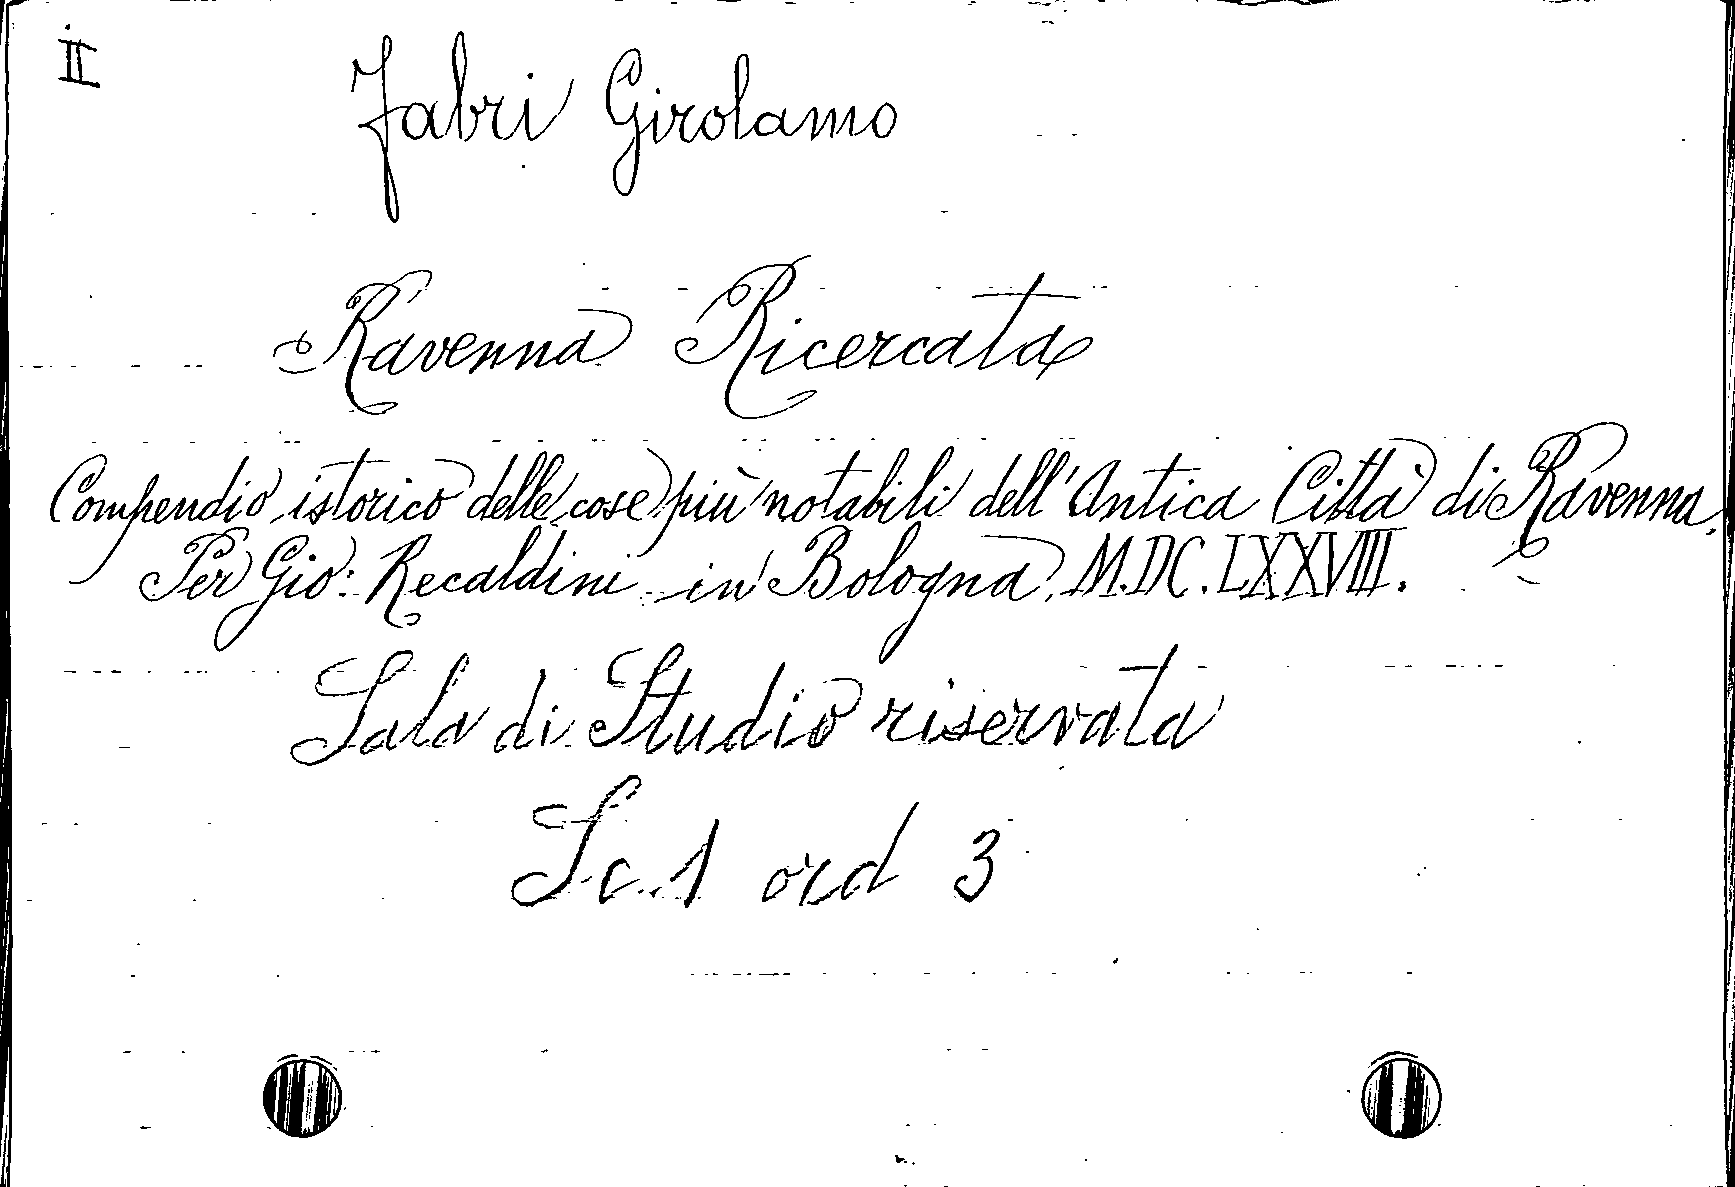 II
Fabri Girolamo
Ravenna Ricercata
Compendio istorico delle cose più notabili dell'Antica Città di Ravenna.
Per Gio: Recaldini in Bologna, M.DC.LXXVIII.
Sala di Studio riservata
Sc. 1 ord 3